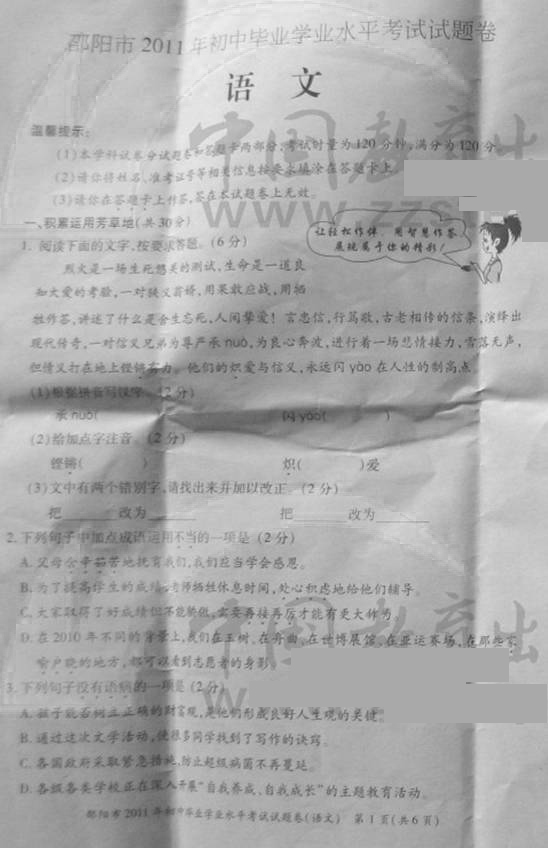 邵阳市2011年初中毕业学业水平考试试题卷
语 文
温馨提示：
(1)本学科试卷分试题卷和答题卡两部分，考试时量为120分钟，满分为120分。
(2)请你将姓名、准考证号等相关信息按要求填涂在答题卡上
(3)请你在答题卡上作答，答在本试题卷上无效。
一、积累运用芳草地(共30分)
让轻松作伴 用智慧作答
展现属于你的精彩！
1. 阅读下面的文字，按要求答题。(6分)
烈火是一场生死悠关的测试，生命是一道良
知大爱的考验，一对狭义翁婿，用果敢应战，用牺
牲作答，讲述了什么是舍生忘死，人间挚爱！言忠信，行笃敬，古老相传的信条，演绎出
现代传奇，一对信义兄弟为尊严承nuò，为良心奔波，进行着一场悲情接力，雪落无声，
但情义打在地上铿锵有力。他们的炽爱与信义，永远闪yào在人性的制高点
(1)根据拼音写汉字。(2分)
承nuò( ) 闪yào( )
(2)给加点字注音。(2分)
铿锵( ) 炽( )爱
(3)文中有两个错别字，请找出来并加以改正。(2分)
把______改为______ 把______改为______
2. 下列句子中加点成语运用不当的一项是(2分)
A. 父母含辛茹苦地抚育我们，我们应当学会感恩。
B. 为了提高学生的成绩，老师牺牲休息时间，处心积虑地给他们辅导。
C. 大家取得了好成绩但不能骄傲，需要再接再厉才能有更大作为
D. 在2010年不同的背景上，我们在玉树、在舟曲、在世博展馆、在亚运赛场，在那些家
喻户晓的地方，都可以看到志愿者的身影
3. 下列句子没有语病的一项是(2分)
A. 孩子能否树立正确的财富观，是他们形成良好人生观的关键。
B. 通过这次文学活动，使很多同学找到了写作的诀窍。
C. 各国政府采取紧急措施，防止超级病菌不再蔓延。
D. 各级各类学校正在深入开展“自我养成、自我成长”的主题教育活动。
邵阳市2011年初中毕业学业水平考试试题卷(语文) 第1页(共6页)
中国教育出
www.zzst
中国教育出
w.